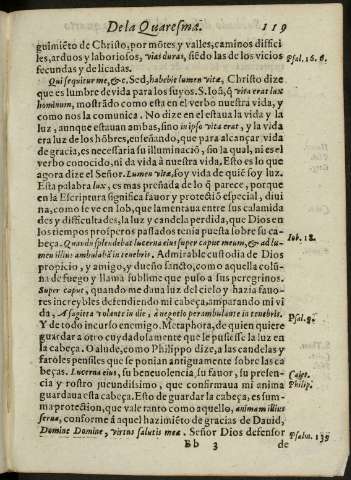 De la Quaresma. 119
guimiẽto de Christo, por mõtes y valles, caminos difficiles,
arduos y laboriosos, vias duras, siẽdo las de los vicios
fecundas y delicadas.
Psal. 16. 6.
Qui sequitur me, &c. Sed, habebit lumen vitæ, Christo dize
que es lumbre de vida para los suyos. S. Ioã, q̃ vita erat lux
hominum, mostrãdo como esta en el verbo nuestra vida, y
como nos la comunica. No dize en el estaua la vida y la
luz, aunque estauan ambas, sino in ipso vita erat, y la vida
era luz de los hõbres, enseñando, que para alcançar vida
de gracia, es necessaria su illuminaciõ, sin la qual, ni es el
verbo conocido, ni da vida à nuestra vida. Esto es lo que
agora dize el Señor. Lumen vitæ, soy vida de quiẽ soy luz.
Esta palabra lux, es mas preñada de lo q̃ parece, porque
en la Escriptura significa fauor y protectiõ especial, diuina,
como se ve en Iob, que lamentaua entre sus calamidades
y difficultades, la luz y candela perdida, que Dios en
los tiempos prosperos passados tenia puesta sobre su cabeça.
Quando splendebat lucerna eius super caput meum, & ad lumen
illius ambulabã in tenebris. Admirable custodia de Dios
Iob. 18.
propicio, y amigo, y dueño sancto, como aquella colũna
de fuego y llama sublime que puso a sus peregrinos.
Super caput, quando me daua luz del cielo y hazia fauores
increybles defendiendo mi cabeça, amparando mi vida,
A sagitta volante in die, a negotio perambulante in tenebris.
Psal. 9.
Y de todo incurso enemigo. Metaphora, de quien quiere
guardar a otro cuydadosamente que le pusiesse la luz en
la cabeça. O alude, como Philippo dize, a las candelas y
faroles pensiles que se ponian antiguamente sobre las cabeças.
Lucerna eius, su beneuolencia, su fauor, su presencia
y rostro jucundissimo, que confirmaua mi anima
Caiet.
Philip.
guardaua esta cabeça. Esto de guardar la cabeça, es summa
protection, que vale tanto como aquello, animam illius
serua, conforme á aquel hazimiẽto de gracias de Dauid,
Domine Domine, virtus salutis meæ. Señor Dios defensor
Psalm. 139
Bb 3 de